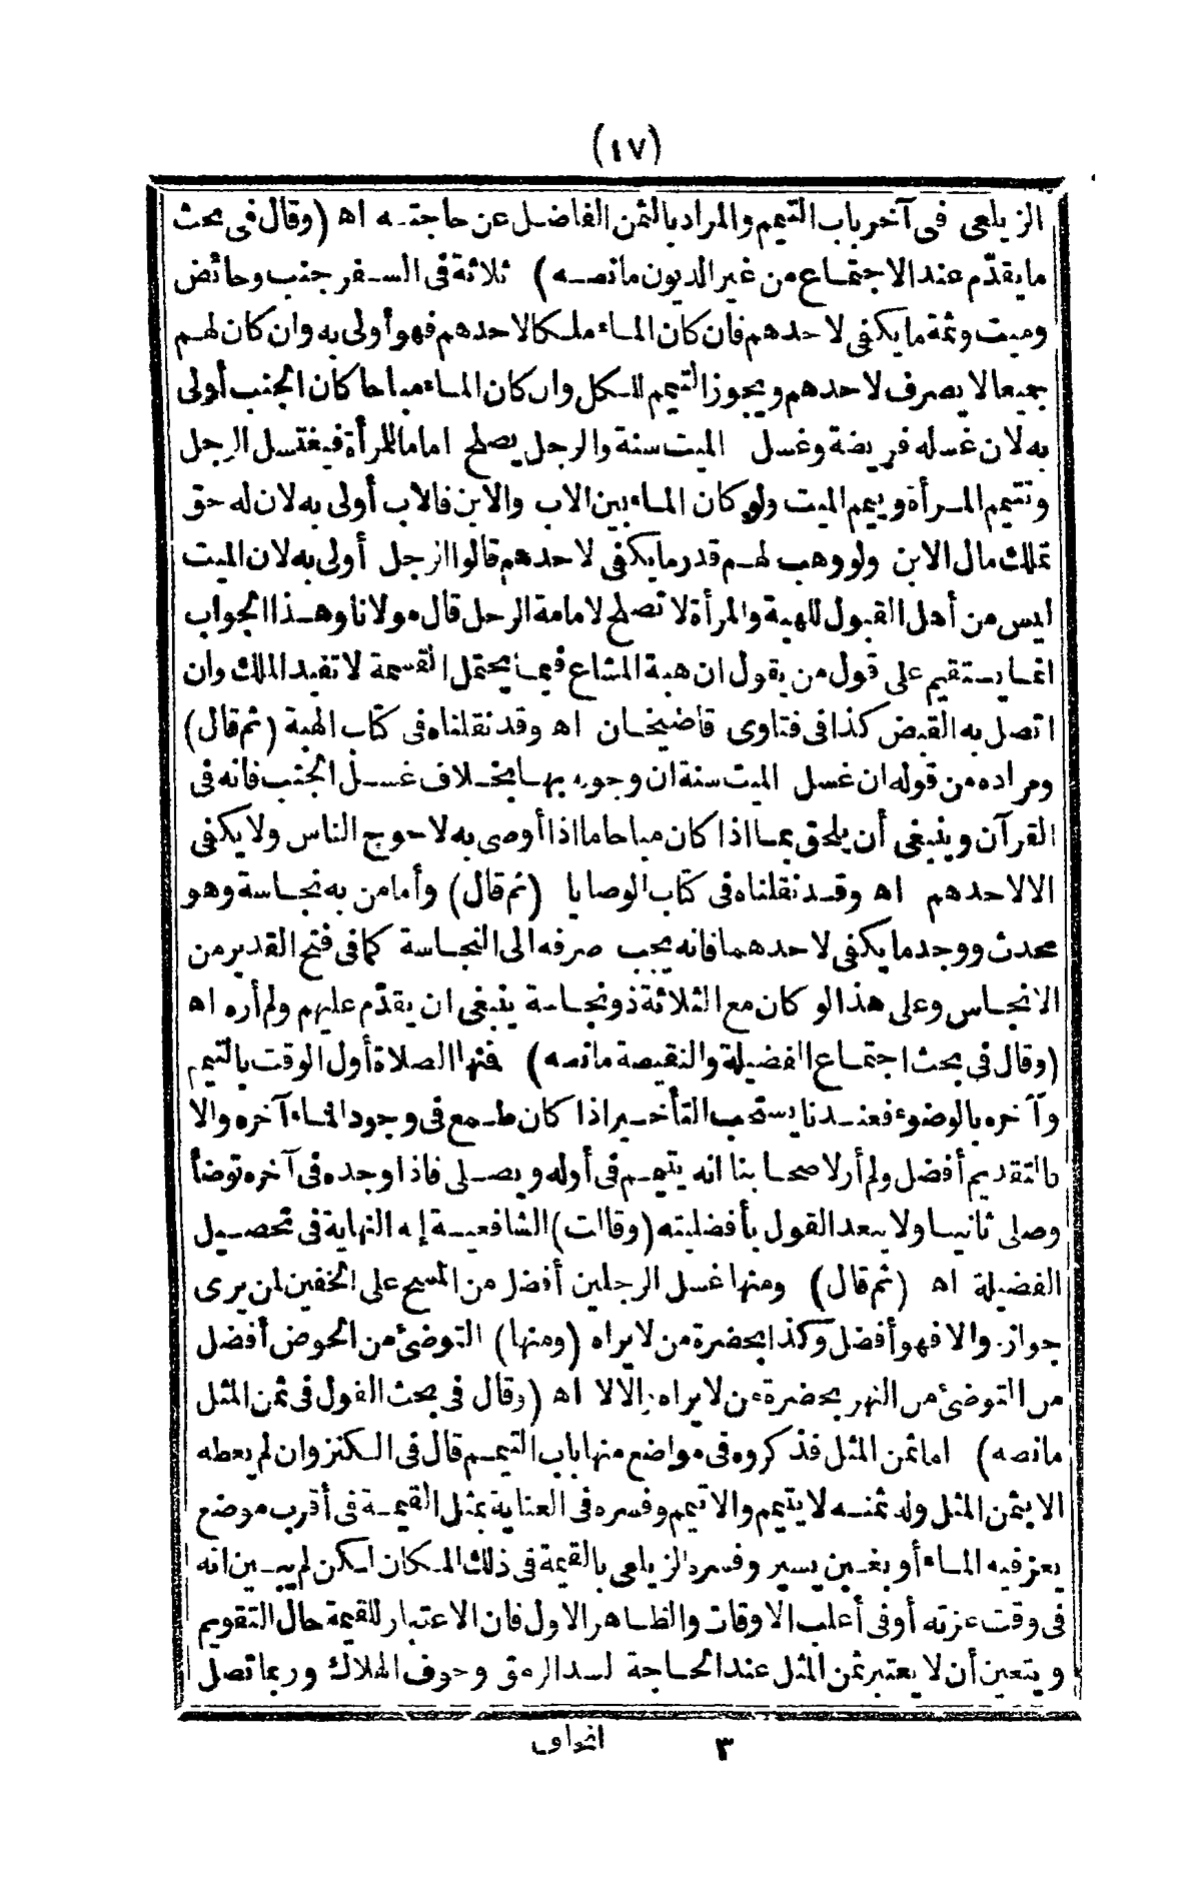 (١٧)
الزيلعى فى آخر باب التيمم والمراد بالثمن الفاضل عن حاجته اه (وقال فى بحث
ما يقدّم عند الاجتماع من غير الديون مانصه) ثلاثة فى السفر جنب وحائض
وميت وثمة ما يكفى لاحدهم فان كان الماء ملكا لاحدهم فهو أولى به وان كان لهم
جميعا لا يصرف لاحدهم ويجوز التيمم للكل وان كان الماء مباحا كان الجنب أولى
به لان غسله فريضة وغسل الميت سنة والرجل يصلح اماما للمرأة فيغتسل الرجل
وتتيمم المرأة ويمم الميت ولو كان الماء بين الاب والابن فالاب أولى به لان له حق
تملك مال الابن ولو وهب لهم قدر ما يكفى لاحدهم قالوا الرجل أولى به لان الميت
ليس من أهل القبول للهبة والمرأة لا تصلح لامامة الرجل قال مولانا وهذا الجواب
انما يستقيم على قول من يقول ان هبة المشاع فيما يحتمل القسمة لا تفيد الملك وان
اتصل به القبض كذا فى فتاوى قاضيخان اه وقد نقلناه فى كتاب الهبة (ثم قال)
ومراده من قوله ان غسل الميت سنة ان وجوبه بها بخلاف غسل الجنب فانه فى
القرآن وينبغى أن يلحق بما اذا كان مباحا ما اذا أوصى به لاحوج الناس ولا يكفى
الا لاحدهم اه وقد نقلناه فى كتاب الوصايا (ثم قال) وأما من به نجاسة وهو
محدث ووجد ما يكفى لاحدهما فانه يجب صرفه الى النجاسة كما فى فتح القدير من
الانجاس وعلى هذا لو كان مع الثلاثة ذو نجاسة ينبغى ان يقدّم عليهم ولم أره اه
(وقال فى بحث اجتماع الفضيلة والنقيصة مانصه) فمنها الصلاة أول الوقت بالتيمم
وآخره بالوضوء فعندنا يستحب التأخير اذا كان طمع فى وجود الماء آخره والا
فالتقديم أفضل ولم أر لاصحابنا انه يتيمم فى أوله ويصلى فاذا وجده فى آخره توضأ
وصلى ثانيا ولا يبعد القول بأفضليته (وقالت) الشافعية إنه النهاية فى تحصيل
الفضيلة اه (ثم قال) ومنها غسل الرجلين أفضل من المسح على الخفين لمن يرى
جوازه والا فهو أفضل وكذا بحضرة من لا يراه (ومنها) التوضئ من الحوض أفضل
من التوضئ من النهر بحضرة من لا يراه والا لا اه (وقال فى بحث القول فى ثمن المثل
مانصه) اما ثمن المثل فذكروه فى مواضع منها باب التيمم قال فى الكنز وان لم يعطه
الا بثمن المثل وله ثمنه لا يتيمم والا تيمم وفسره فى العناية بمثل القيمة فى أقرب موضع
يعز فيه الماء أو بغبن يسير وفسره الزيلعى بالقيمة فى ذلك المكان لكن لم يبين انه
فى وقت عزته أو فى أغلب الاوقات والظاهر الاول فان الاعتبار للقيمة حال التقويم
ويتعين أن لا يعتبر ثمن المثل عند الحاجة لسد الرمق وخوف الهلاك وربما تصل
٣ اتحاف